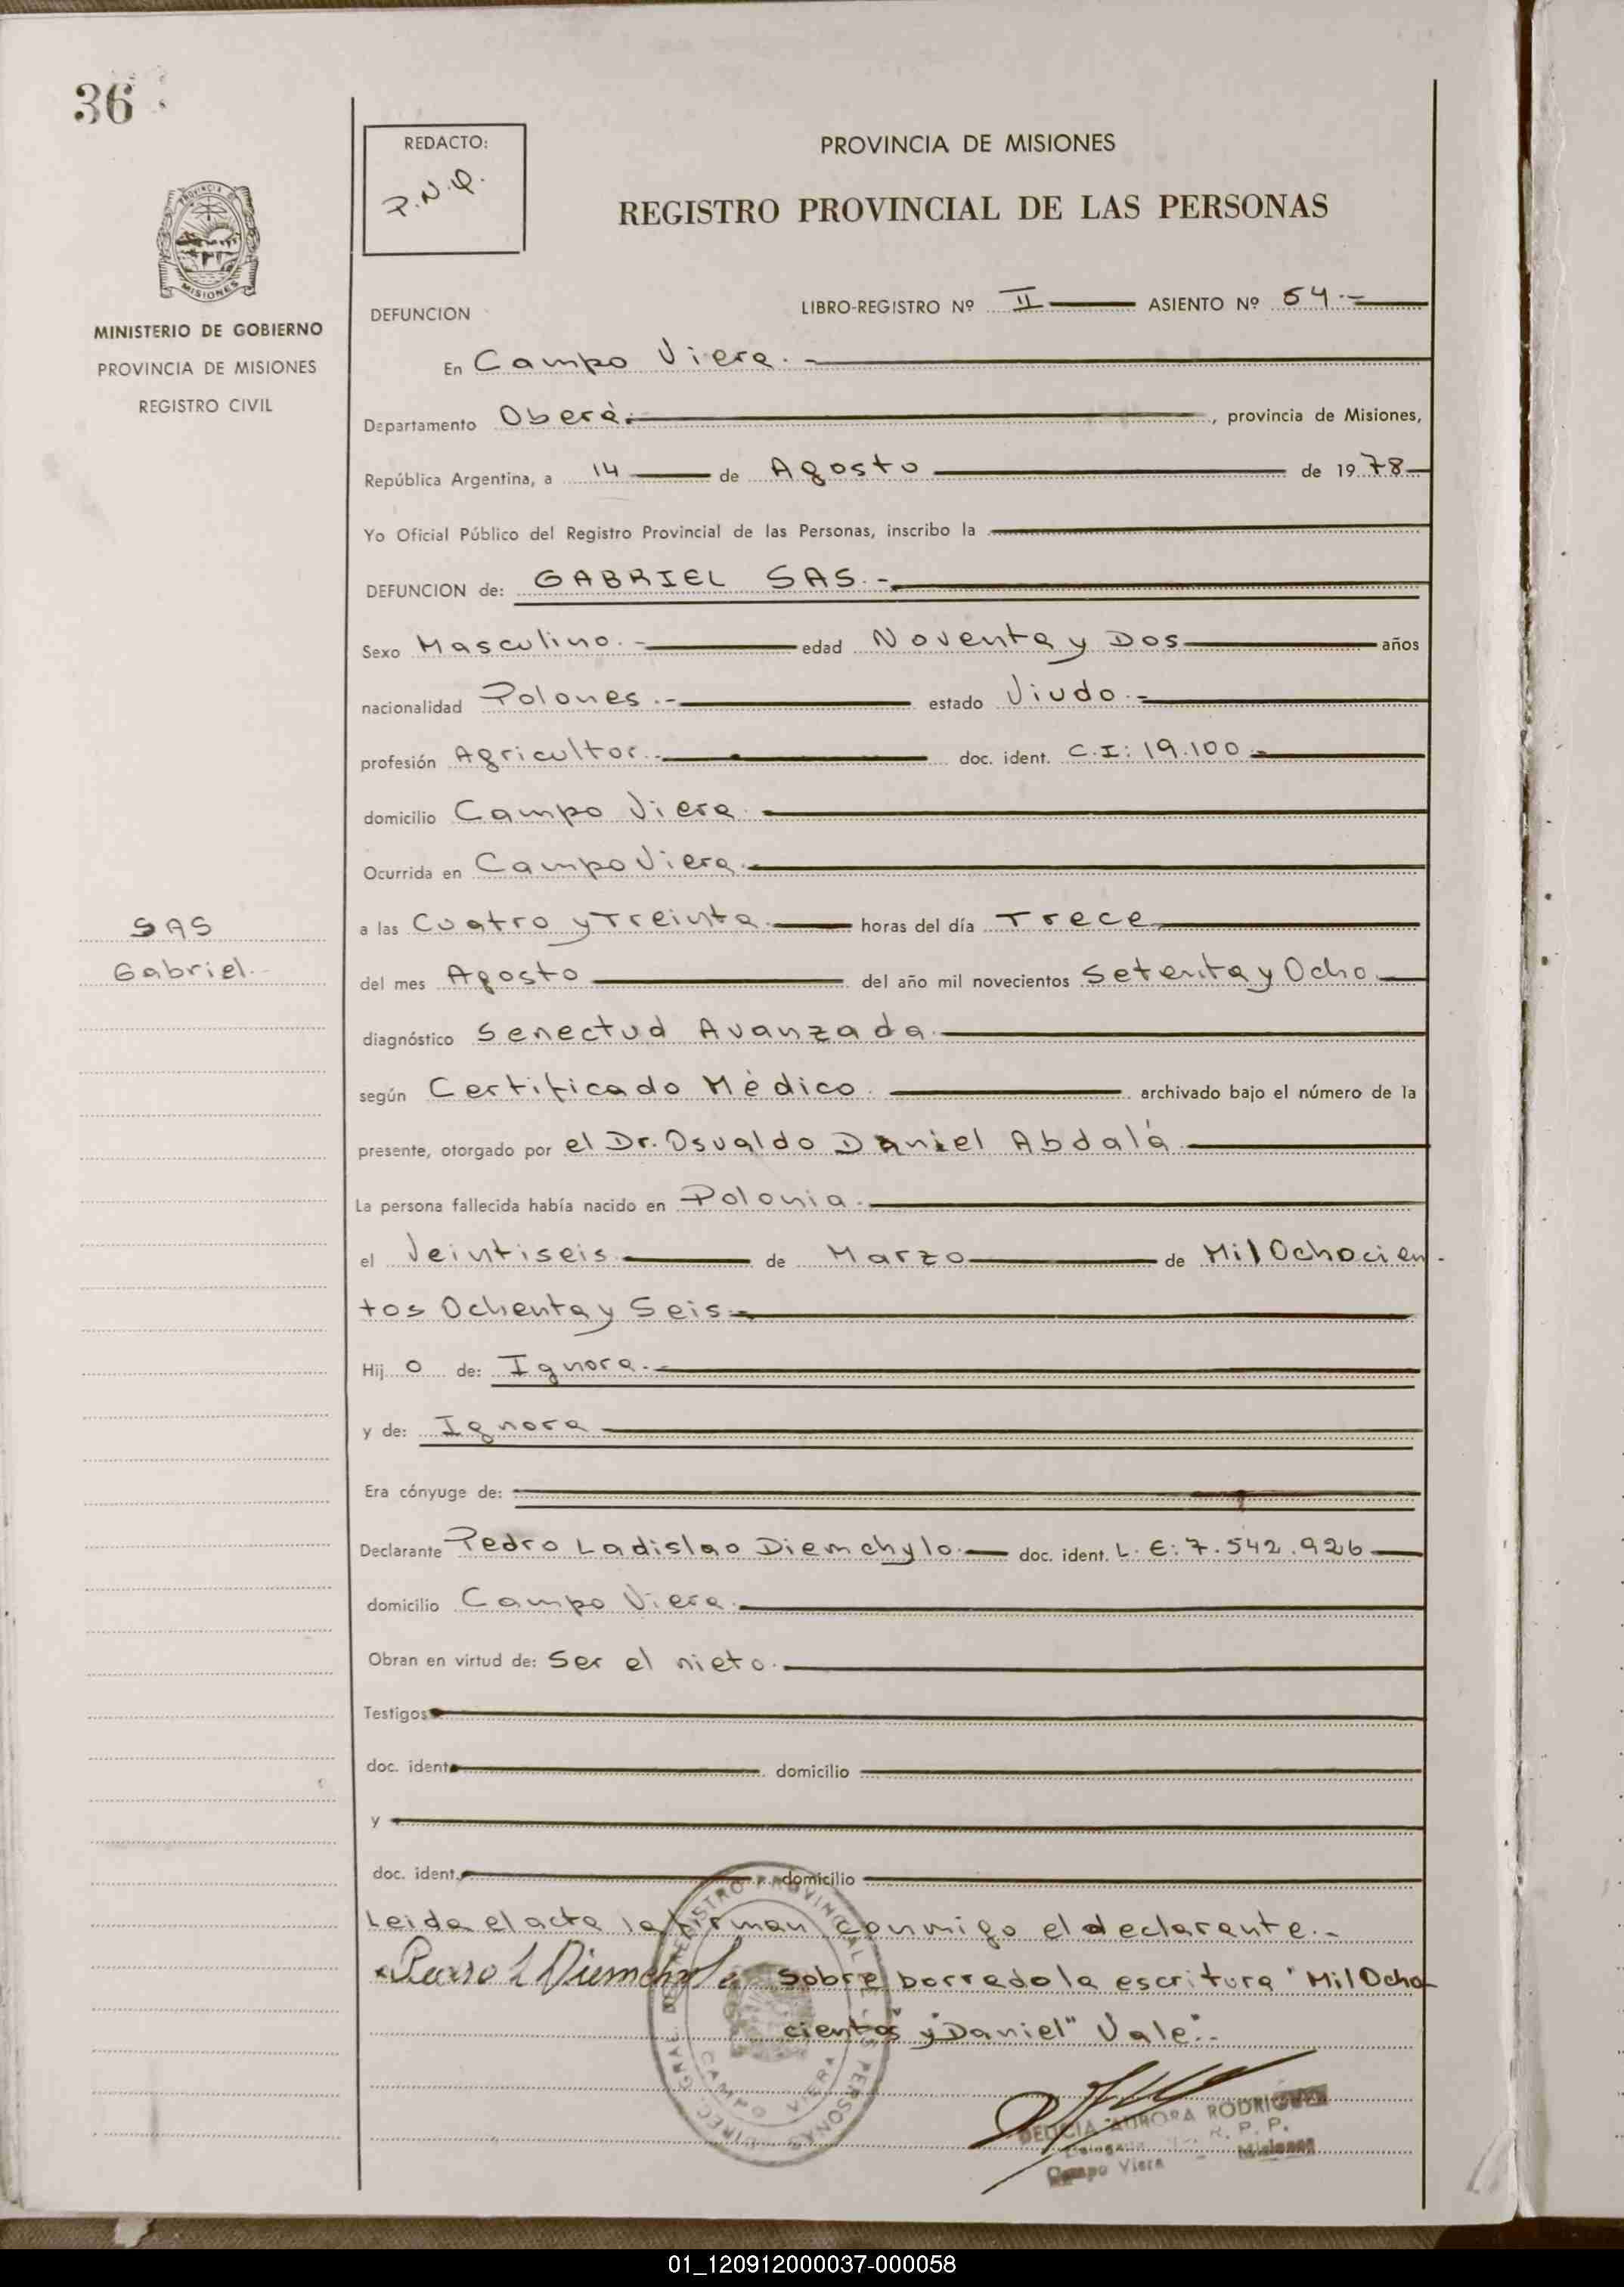 36
REDACTO:
P.N.Q.
PROVINCIA DE MISIONES
REGISTRO PROVINCIAL DE LAS PERSONAS
PROVINCIA DE
MISIONES
MINISTERIO DE GOBIERNO
PROVINCIA DE MISIONES
REGISTRO CIVIL
DEFUNCION LIBRO-REGISTRO Nº II ASIENTO Nº 54.-
En Campo Viera.-
Departamento Oberá. , provincia de Misiones,
República Argentina, a 14 de Agosto de 1978
Yo Oficial Público del Registro Provincial de las Personas, inscribo la
DEFUNCION de: GABRIEL SAS.-
Sexo Masculino.- edad Noventa y Dos años
nacionalidad Polones.- estado Viudo.-
profesión Agricultor.- doc. ident. C.I: 19.100.-
domicilio Campo Viera.
Ocurrida en Campo Viera.
SAS
Gabriel.
a las Cuatro y Treinta horas del día Trece
del mes Agosto del año mil novecientos Setenta y Ocho
diagnóstico Senectud Avanzada.
según Certificado Mèdico. archivado bajo el número de la
presente, otorgado por el Dr. Osvaldo Daniel Abdalá
La persona fallecida había nacido en Polonia.
el Veintiseis de Marzo de Mil Ochocien-
tos Ochenta y Seis.-
Hijo de: Ignora.-
y de: Ignora
Era cónyuge de:
Declarante Pedro Ladislao Diemchylo. doc. ident. L.E: 7.542.926
domicilio Campo Viera.
Obran en virtud de: Ser el nieto.
Testigos
doc. ident. domicilio
y
doc. ident. domicilio
Leida el acta la firman conmigo el declarante.-
Pedro L Diemchylo Sobre borrado la escritura "Mil Ocho
cientos" y "Daniel" Vale.-
DIREC. GRAL. DE REGISTRO PROVINCIAL DE LAS PERSONAS
CAMPO VIERA
DELICIA AURORA RODRIGUEZ
R. P. P.
Campo Viera - Misiones
01_120912000037-000058